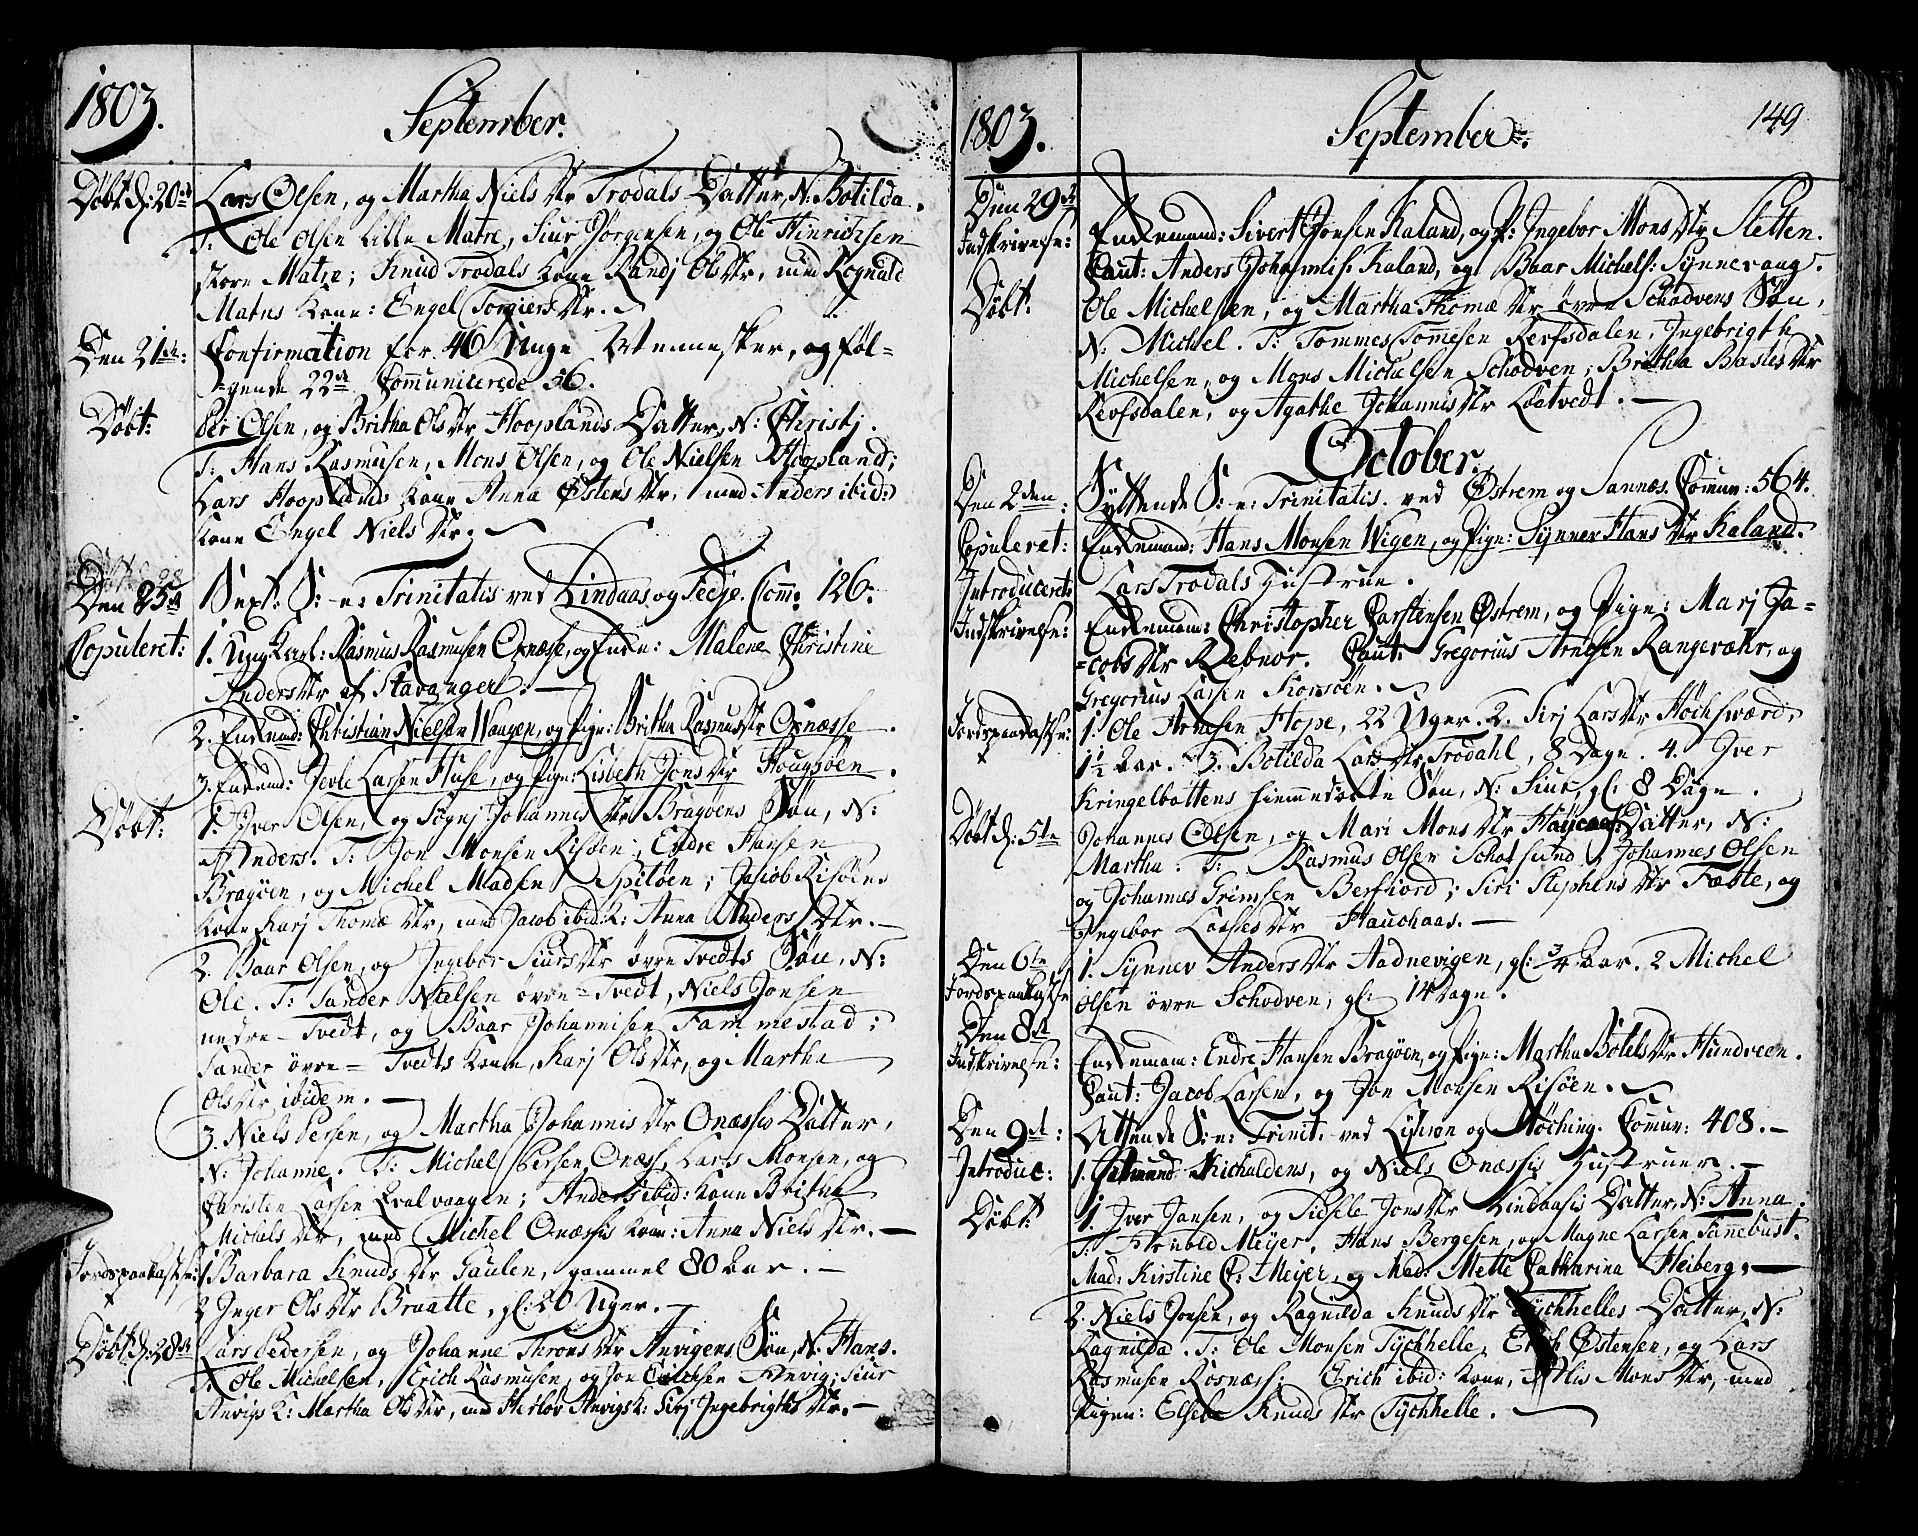 1803.
September.
Døbt d: 20de
Lars Olsen, og Martha Niels Dtr Trodals Datter, N: Botilda.
T: Ole Olsen Lille Matre, Siur Jørgensen, og Ole Hinrichsen
store Matre; Knud Trodals Kone Randj Ols Dtr, med Rognald
Matres Kone: Engel Torgiers Dtr.
Den 21de:
Confirmation for 46 Unge Mennesker, og føl=
=gende 22de Communicerede 56.
Døbt:
Per Olsen, og Britha Ols Dtr Hooplands Datter, N: Christj.
T: Hans Rasmusen, Mons Olsen, og Ole Nielsen Hoopland;
Lars Hooplands Kone Anna Østens Dtr, med Anders ibid:
Kone Engel Niels Dtr.
Den 25de
Sext: S: e: Trinitatis ved Lindaas og Fedje. Com: 126.
Copuleret:
1. Ung Karl: Rasmus Rasmusen Onæse, og Enke: Malene Christine
Anders Dtr af Stavanger.
2. Enkem: Christian Nielsen Waagen, og Pige: Britha Rasmus Dtr Onæsse.
3. Enkem: Jetle Larsen Huse, og Pige: Lisbeth Jons Dtr Hougsøen.
Døbt:
1. Iver Olsen, og Søgnj Johannis Dtr Bragøens Søn, N:
Anders. T: Jon Monsen Risøen, Endre Hansen
Bragøen, og Michel Madsen Spiløen; Jacob Risøens
Kone Karj Thomæ Dtr, med Jacob ibid: K: Anna Anders Dtr.
2. Baar Olsen, og Ingebor Siurs Dtr øvre Tvedts Søn, N:
Ole. T: Sander Nielsen øvre=Tvedt, Niels Jonsen
nedre=Tvedt, og Baar Johannisen Fammestad;
Sander øvre=Tvedts Kone, Karj Ols Dtr, og Martha
Ols Dtr ibidem.
3. Niels Persen, og Martha Johannis Dtr Onæssis Datter,
N: Johanne. T: Michel Persen Onæss, Lars Monsen, og
Christen Larsen Qvalvaagen; Anders ibid: Kone Britha
Michels Dtr, med Michel Onæssis Kone: Anna Niels Dtr.
Jordspaakastelse:
1. Barbara Knuds Dtr Gaulen, gammel 80 Aar.
2. Inger Ols Dtr Bruatte, gl: 20 Uger.
Døbt d: 28de
Lars Pedersen, og Johanne Throns Dtr Anvigens Søn, N: Hans.
T: Ole Michelsen, Erich Rasmusen, og Jon Erichsen Anvig; Siur
Anvigs K: Martha Ols Dtr, med Herlov Anvigs K: Sirj Ingebrigths Dtr.
1803.
September.
149
Den 29de
Indskrivelse:
Enkemand: Sivert Jonsen Kaland, og P: Ingebor Mons Dtr Sletten.
Caut: Anders Johannis: Kaland, og Baar Michels: Synnevaag.
Døbt:
Ole Michelsen, og Martha Thomæ Dtr øvre Schodvens Søn,
N: Michel. T: Tommes Tomesen Refsdalen, Ingebrigth
Michelsen, og Mons Michelsen Schodven; Britha Bastes Dtr
Refsdalen, og Agathe Johannis Dtr Qvetvedt.
October.
Den 2den:
Syttende S: e: Trinitatis. ved Østrem og Sannæs. Comun: 564.
Copuleret:
Enkemand: Hans Monsen Wigen, og Pige: Synnev Hans Dtr Kaland.
Introduceret:
Lars Trodals Hustrue.
Indskrivelse:
Enkemand: Christopher Carstensen Østrem, og Pige: Marj Ja=
=cobs Dtr Rebnor. Caut: Gregorius Arnesen Rangevæhr, og
Gregorius Larsen Korsøen.
Jordspaakastelse:
1. Ole Arnesen Hope, 22 Uger. 2. Sirj Lars Dtr Høchsværd,
1 1/2 Aar. 3. Botilda Lars Dtr Trodahl, 8 Dage. 4. Iver
Kringelbottens hiemmedøbte Søn, N: Siur, gl: 8 Dage.
Døbt d: 5te
Johannes Olsen, og Mari Mons Dtr Haucaas Datter, N:
Martha. T: Rasmus Olsen Schotsund, Johannes Olsen
og Johannes Grimsen Berfiord; Siri Stephens Dtr Fæste, og
Ingebor Lasses Dtr Hauchaas.
Den 6te
Jordspaakastelse
1. Synnev Anders Dtr Aadnevigen, gl: 3/4 Aar. 2 Michel
Olsen øvre Schodven, gl: 14 Dage.
Den 8de
Indskrivelse:
Enkemam: Endre Hansen Bragøen, og Pige: Martha Botels Dtr Hundveen.
Caut: Jacob Larsen, og Jon Monsen Risøen.
Den 9de:
Attende S: e: Trinit. ved Lygren og Høching. Comun: 408.
Introduc:
1. Gudmund Kicholdens, og Niels Onæssis Hustruer.
Døbt:
1. Iver Jansen, og Sidsele Jons Dtr Lindaasis Datter, N: Anna.
T: Arnold Meyer, Hans Bergesen, og Magne Larsen Fannebust.
Mad: Kirstine C: Meyer, og Mad: Mette Catharina Heiberg.
2. Niels Jonsen, og Ragnilda Knuds Dtr Tychhelles Datter, N:
Ragnilda. T: Ole Monsen Tychhelle, Erich Østensen, og Lars
Rasmusen Rosnæss: Erich ibid: Kone, Alis Mons Dtr, med
Pigen: Elsebe Knuds Dtr Tychhelle.